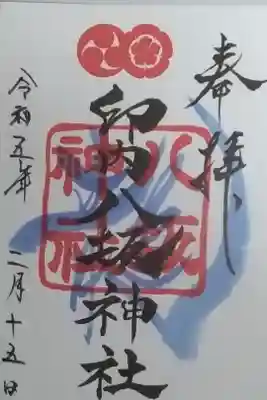 奉拝
印内八坂神社
八坂神社
令和五年 二月十五日